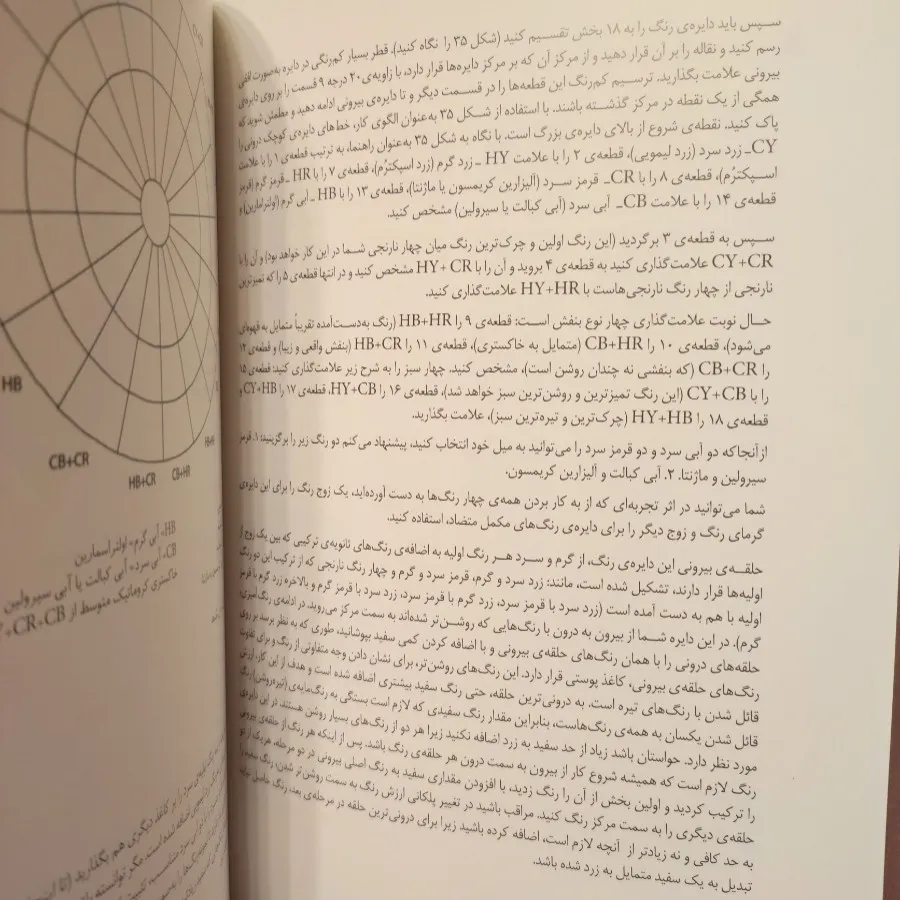 سپس باید دایره‌ی رنگ را به ۱۸ بخش تقسیم کنید (شکل ۳۵ را نگاه کنید). قطر بسیار کم‌رنگی در دایره به‌صورت افقی
رسم کنید و نقاله را بر آن قرار دهید و از مرکز آن که بر مرکز دایره‌ها قرار دارد، با زاویه‌ی ۲۰ درجه ۹ قسمت را بر روی دایره‌ی
بیرونی علامت بگذارید. ترسیم کم‌رنگ این قطعه‌ها را در قسمت دیگر و تا دایره‌ی بیرونی ادامه دهید و مطمئن شوید که
همگی از یک نقطه در مرکز گذشته باشند. با استفاده از شکل ۳۵ به‌عنوان الگوی کار، خط‌های دایره‌ی کوچک درونی را
پاک کنید. نقطه‌ی شروع از بالای دایره‌ی بزرگ است. با نگاه به شکل ۳۵ به‌عنوان راهنما، به ترتیب قطعه‌ی ۱ را با علامت
CY_ زرد سرد (زرد لیمویی)، قطعه‌ی ۲ را با علامت HY _ زرد گرم (زرد اسپکترُم)، قطعه‌ی ۷ را با HR _ قرمز گرم (قرمز
اسپکترُم)، قطعه‌ی ۸ را با CR_ قرمز سرد (آلیزارین کریمسون یا ماژنتا)، قطعه‌ی ۱۳ را با HB _ آبی گرم (اولترامارین) و
قطعه‌ی ۱۴ را با علامت CB_ آبی سرد (آبی کبالت یا سیرولین) مشخص کنید.
سپس به قطعه‌ی ۳ برگردید (این رنگ اولین و چرک‌ترین رنگ میان چهار نارنجی شما در این کار خواهد بود) و آن را با
CY+CR علامت‌گذاری کنید به قطعه‌ی ۴ بروید و آن را با HY+ CR مشخص کنید و در انتها قطعه‌ی ۵ را که تمیزترین
نارنجی از چهار رنگ نارنجی‌هاست با HY+HR علامت‌گذاری کنید.
حال نوبت علامت‌گذاری چهار نوع بنفش است: قطعه‌ی ۹ را HB+HR (رنگ به‌دست‌آمده تقریباً متمایل به قهوه‌ای
می‌شود)، قطعه‌ی ۱۰ را CB+HR (متمایل به خاکستری)، قطعه‌ی ۱۱ را HB+CR (بنفش واقعی و زیبا) و قطعه‌ی ۱۲
را CB+CR (که بنفشی نه چندان روشن است)، مشخص کنید. چهار سبز را به شرح زیر علامت‌گذاری کنید: قطعه‌ی ۱۵
را با CY+CB (این رنگ تمیزترین و روشن‌ترین سبز خواهد شد)، قطعه‌ی ۱۶ را HY+CB، قطعه‌ی ۱۷ را CY+HB و
قطعه‌ی ۱۸ را HY+HB (چرک‌ترین و تیره‌ترین سبز)، علامت بگذارید.
از آنجاکه دو آبی سرد و دو قرمز سرد را می‌توانید به میل خود انتخاب کنید، پیشنهاد می‌کنم دو رنگ زیر را برگزینید: ۱. قرمز
سیرولین و ماژنتا. ۲. آبی کبالت و آلیزارین کریمسون.
شما می‌توانید در اثر تجربه‌ای که از به کار بردن همه‌ی چهار رنگ‌ها به دست آورده‌اید، یک زوج رنگ را برای این دایره‌ی
گرمای رنگ و زوج دیگر را برای دایره‌ی رنگ‌های مکمل متضاد، استفاده کنید.
حلقه‌ی بیرونی این دایره‌ی رنگ، از گرم و سرد هر رنگ اولیه به اضافه‌ی رنگ‌های ثانویه‌ی ترکیبی که بین یک زوج از
اولیه‌ها قرار دارند، تشکیل شده است، مانند: زرد سرد و گرم، قرمز سرد و گرم و چهار رنگ نارنجی که از ترکیب این دو رنگ
اولیه با هم به دست آمده است (زرد سرد با قرمز سرد، زرد گرم با قرمز سرد، زرد سرد با قرمز گرم و بالاخره زرد گرم با قرمز
گرم). در این دایره شما از بیرون به درون با رنگ‌هایی که روشن‌تر شده‌اند به سمت مرکز می‌روید. در ادامه‌ی رنگ‌آمیزی،
حلقه‌های درونی را با همان رنگ‌های حلقه‌ی بیرونی و با اضافه کردن کمی سفید بپوشانید، طوری که به نظر برسد بر روی
رنگ‌های حلقه‌ی بیرونی، کاغذ پوستی قرار دارد. این رنگ‌های روشن‌تر، برای نشان دادن وجه متفاوتی از رنگ و برای تفاوت
قائل شدن با رنگ‌های تیره است. به درونی‌ترین حلقه، حتی رنگ سفید بیشتری اضافه شده است و هدف از این کار، ارزش
قائل شدن یکسان به همه‌ی رنگ‌هاست، بنابراین مقدار رنگ سفیدی که لازم است بستگی به رنگ‌مایه‌ی (تیره‌روشن) رنگ
مورد نظر دارد. حواستان باشد زیاد از حد سفید به زرد اضافه نکنید زیرا هر دو از رنگ‌های بسیار روشن هستند در این دایره‌ی
رنگ لازم است که همیشه شروع کار از بیرون به سمت درون هر حلقه‌ی رنگ باشد. پس از اینکه هر رنگ از حلقه‌ی بیرونی
را ترکیب کردید و اولین بخش از آن را رنگ زدید، با افزودن مقداری سفید به رنگ اصلی بیرونی در دو مرحله، هریک از دو
حلقه‌ی دیگری را به سمت مرکز رنگ کنید. مراقب باشید در تغییر پلکانی ارزش رنگ به سمت روشن‌تر شدن، رنگ سفید را
به حد کافی و نه زیادتر از آنچه لازم است، اضافه کرده باشید زیرا برای درونی‌ترین حلقه در مرحله‌ی بعد، رنگ حاصل نباید
تبدیل به یک سفید متمایل به زرد شده باشد.
HB
CB+CR
HB+CR
CB+HR
HB+HR
HB= آبی گرم= اولتراسمارین
CB= آبی سرد= آبی کبالت یا آبی سیرولین
خاکستری کروماتیک متوسط از CR+CB+
کاغذ دیگری هم بگذارید (تا این